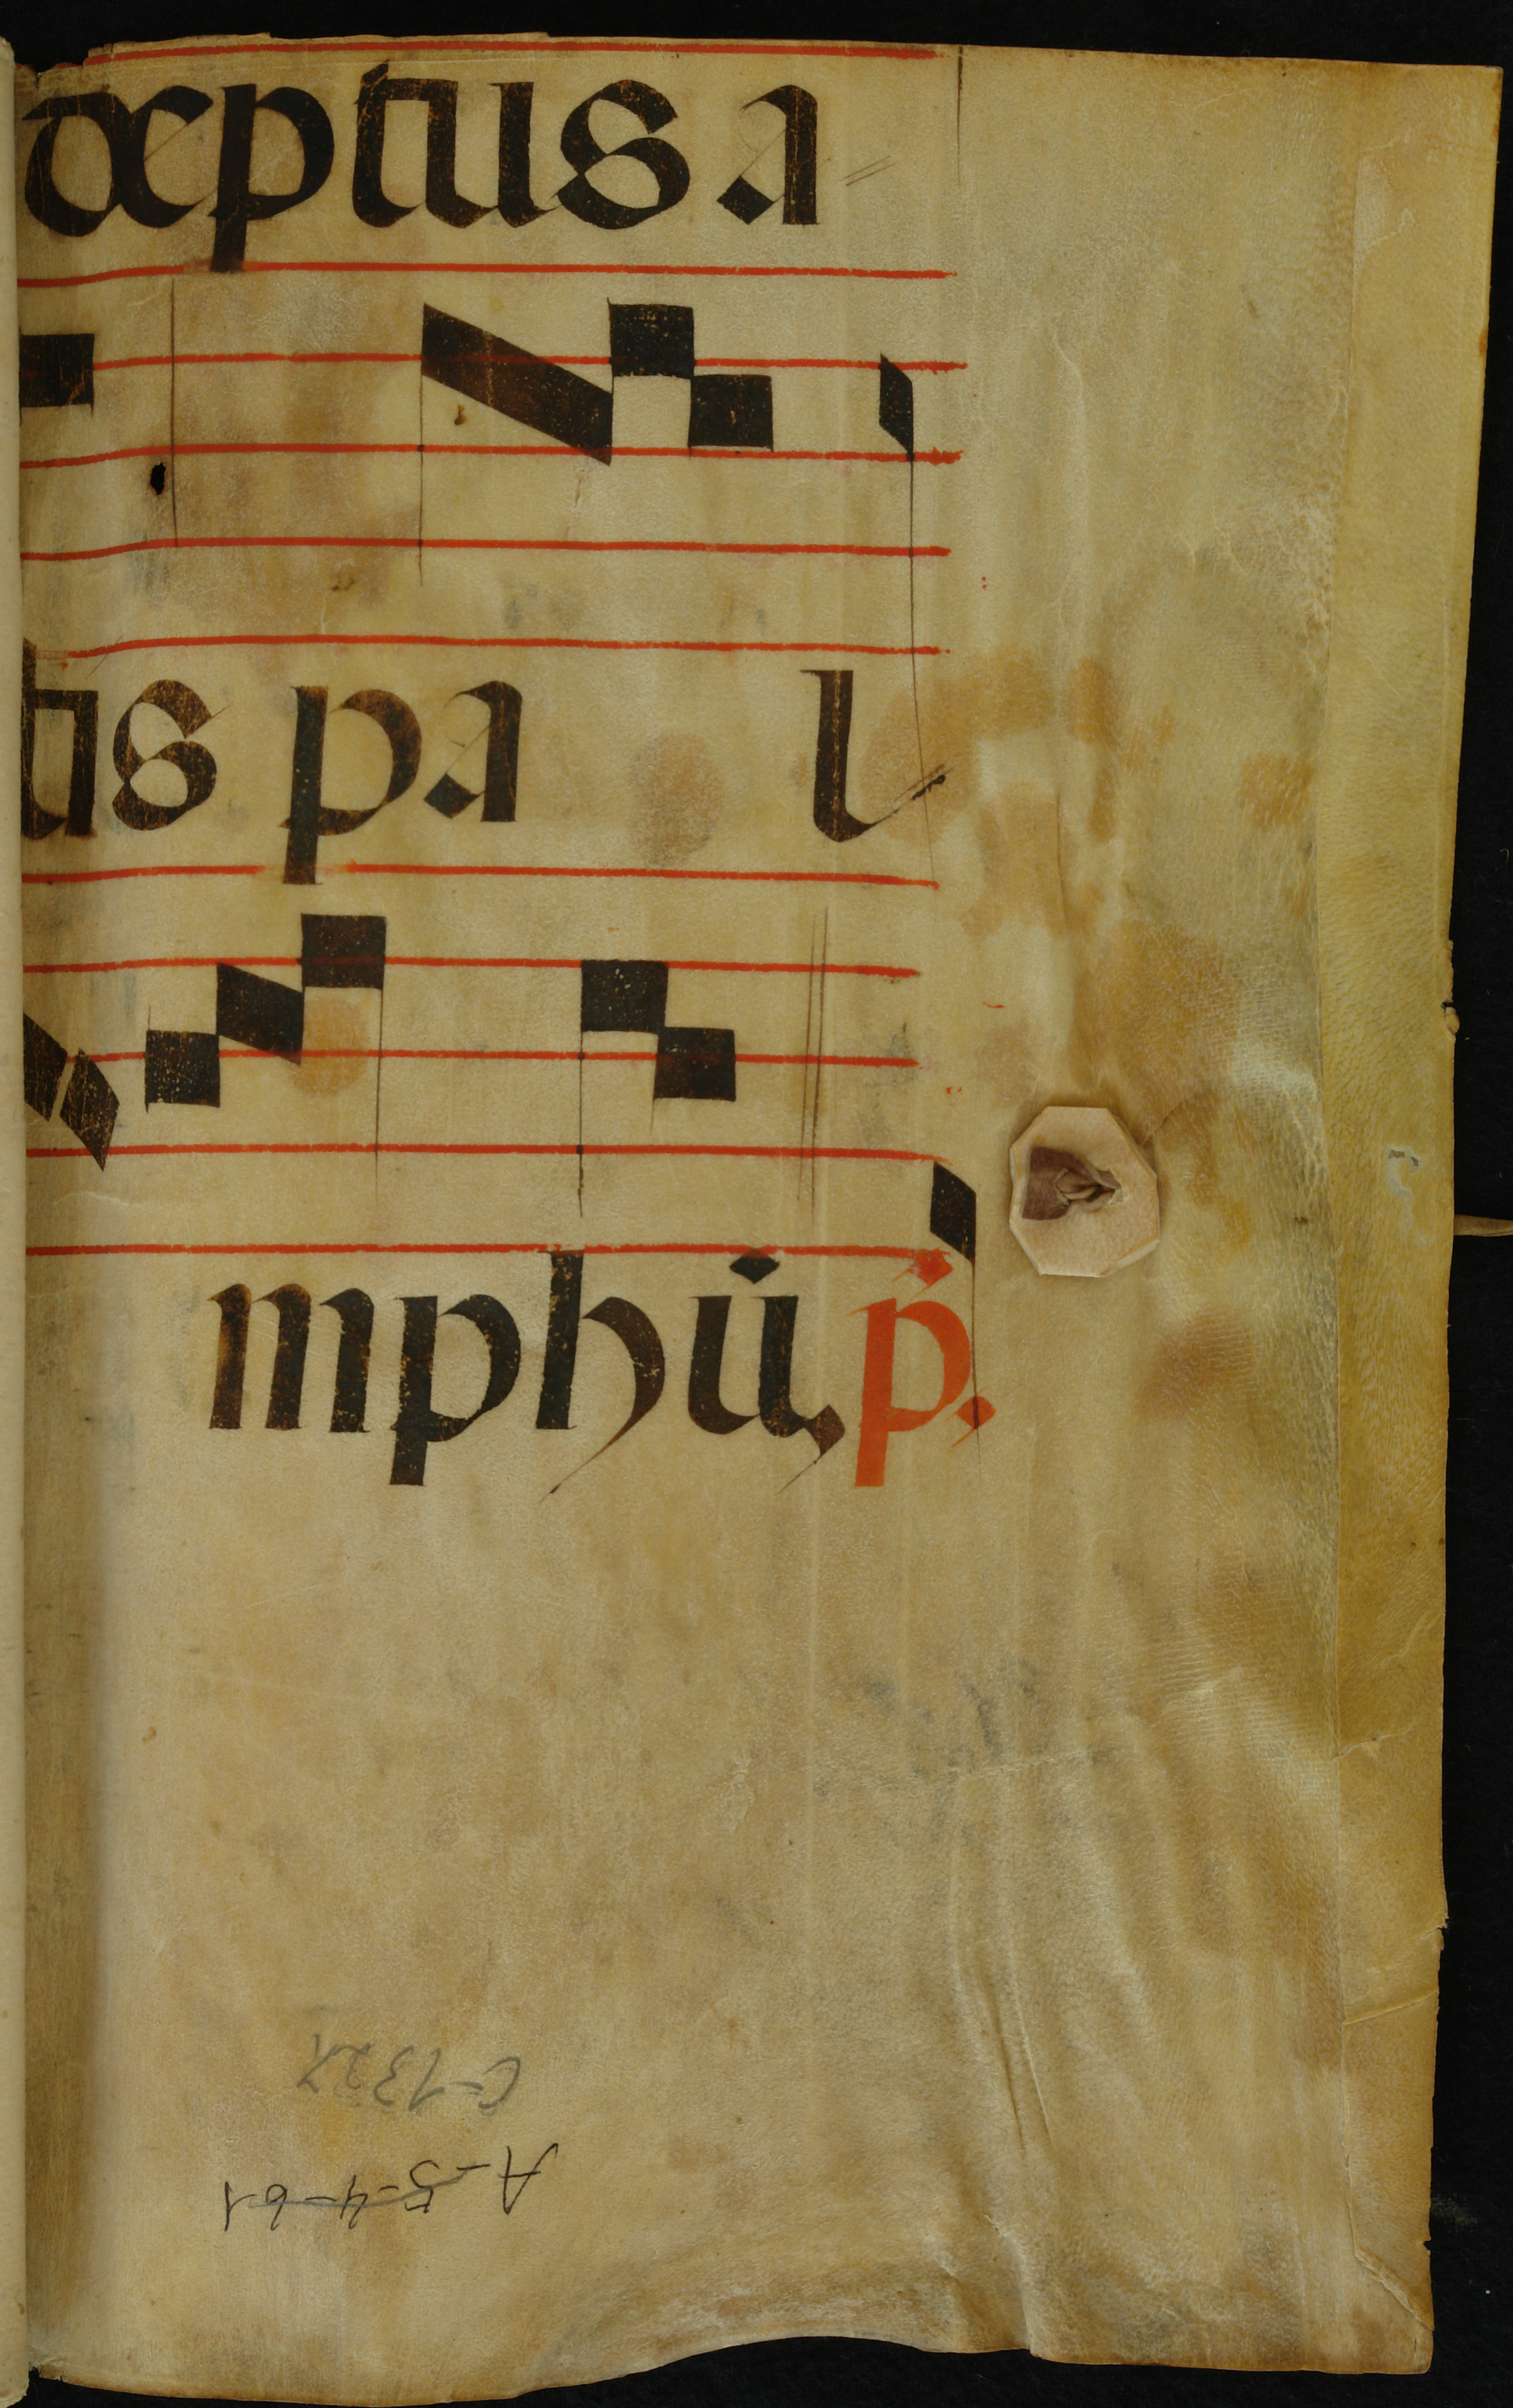 ceptus a
tis pal
mphũ, p̃.
C-1327
A-5-4-61